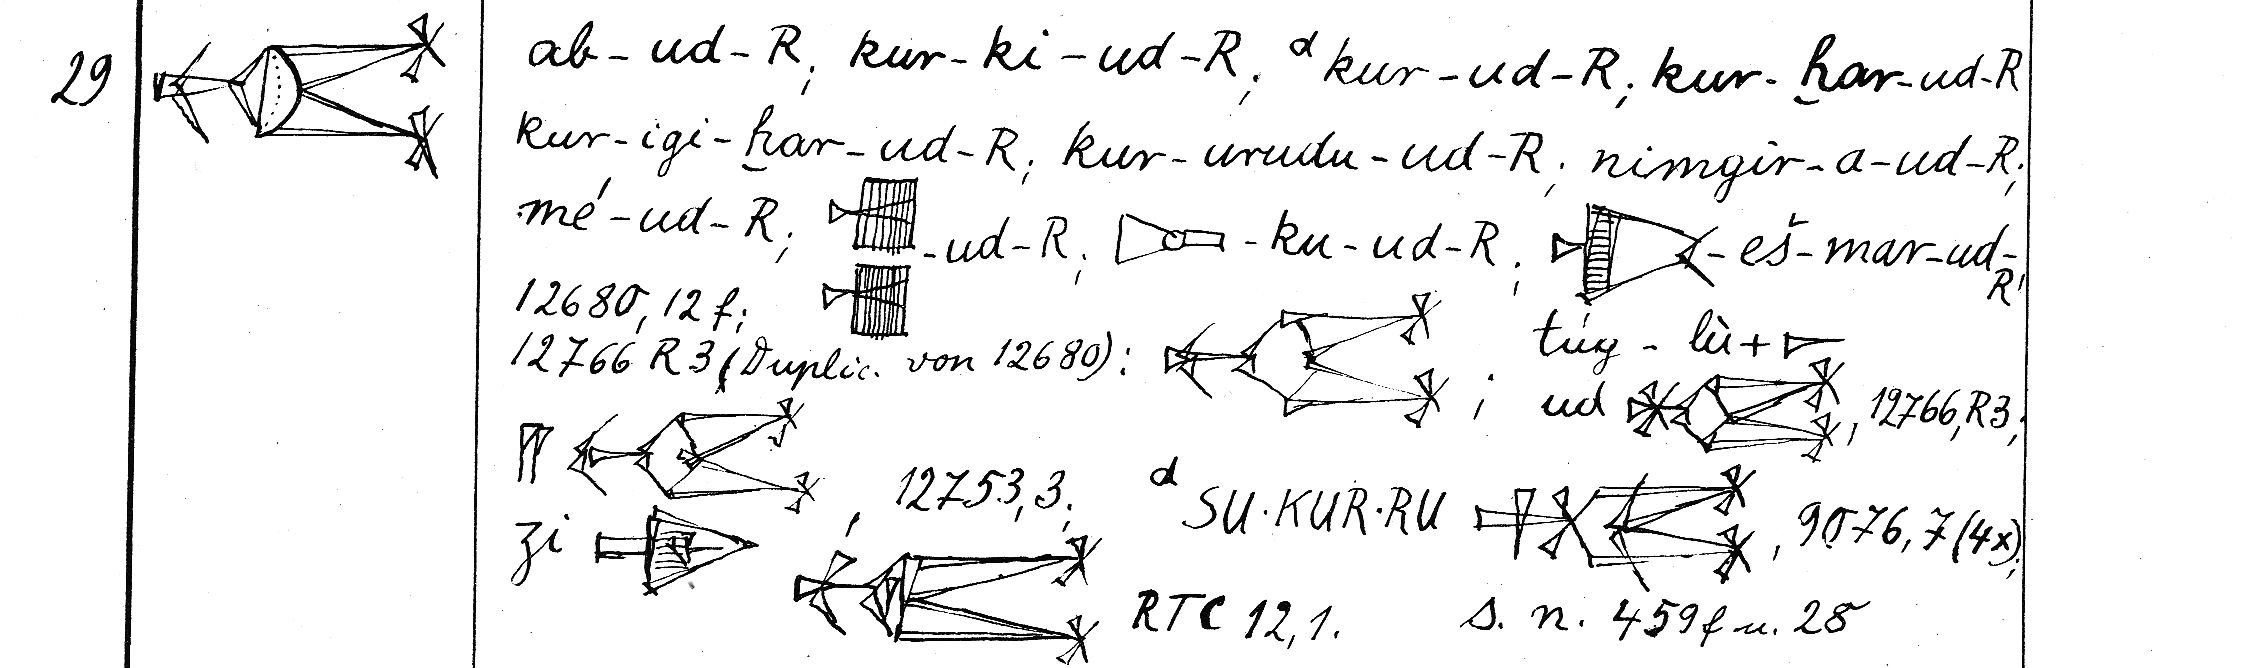 29
ab-ud-R; kur-ki-ud-R; ᵈkur-ud-R; kur-ḫar-ud-R
kur-igi-ḫar-ud-R; kur-urudu-ud-R; nimgir-a-ud-R;
mé-ud-R; -ud-R; -ku-ud-R; -eš-mar-ud-R;
12680,12 f;
12766 R3 (Duplic. von 12680): ; túg-lù+
ud , 12766,R3;
, 12753,3; ᵈSU·KUR·RU , 9076,7(4x);
zi RTC 12,1. s. n. 459f u. 28